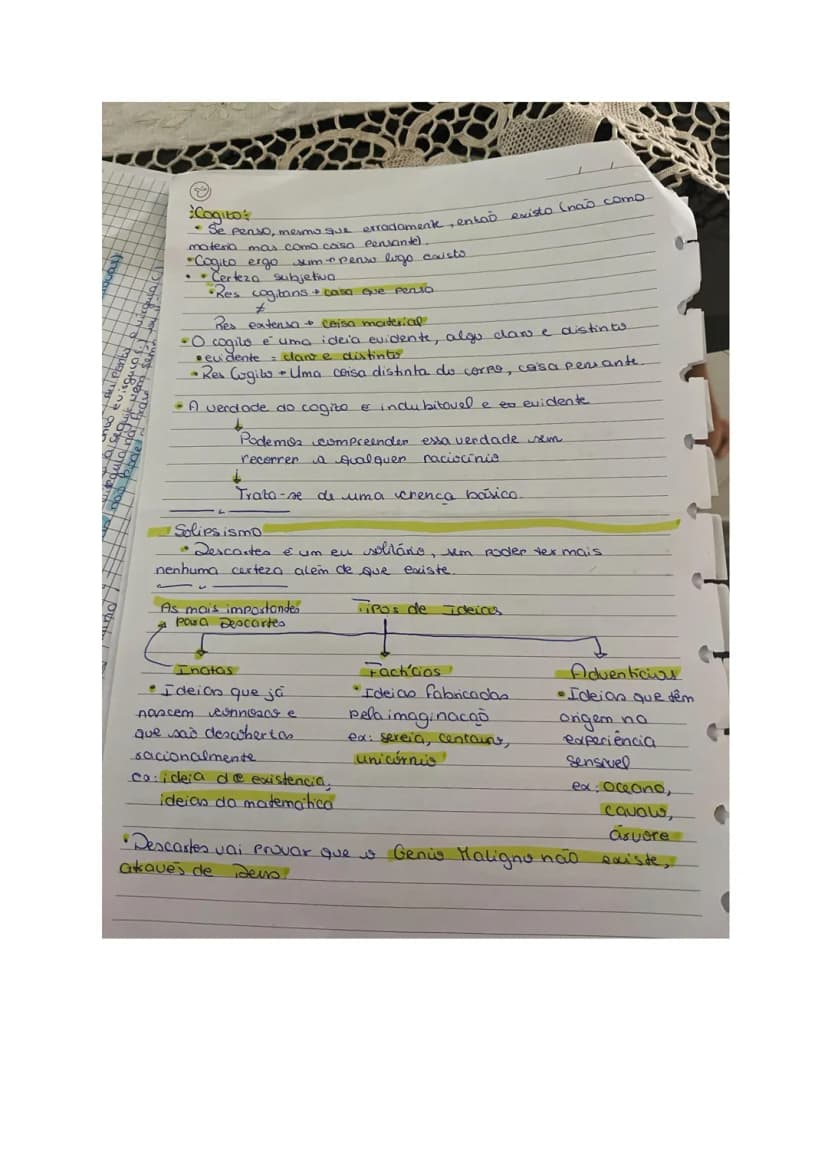 Cogito:
• Se penso, mesmo que erradamente, então existo (não como
matéria mas como coisa pensante).
• Cogito ergo sum → penso logo existo
• • Certeza subjetiva
• Res cogitans → coisa que pensa
≠
Res extensa → coisa material
• O cogito é uma ideia evidente, algo claro e distinto
• evidente = claro e distinto
• Res Cogito → Uma coisa distinta do corpo, coisa pensante.
• A verdade do cogito é indubitável e evidente
↓
Podemos compreender essa verdade sem
recorrer a qualquer raciocínio
↓
Trata-se de uma crença básica.
Solipsismo
• Descartes é um eu solitário, sem poder ter mais
nenhuma certeza além de que existe.
As mais importantes
para Descartes
Tipos de Ideias
Inatas
• Ideias que já
nascem connosco e
que são descobertas
racionalmente
ex: ideia de existência,
ideias da matemática
Factícias
• Ideias fabricadas
pela imaginação
ex: sereia, centauro,
unicórnio
Adventícias
• Ideias que têm
origem na
experiência
sensível
ex: oceano,
cavalo,
árvore
• Descartes vai provar que o Genio Maligno não existe,
através de Deus.